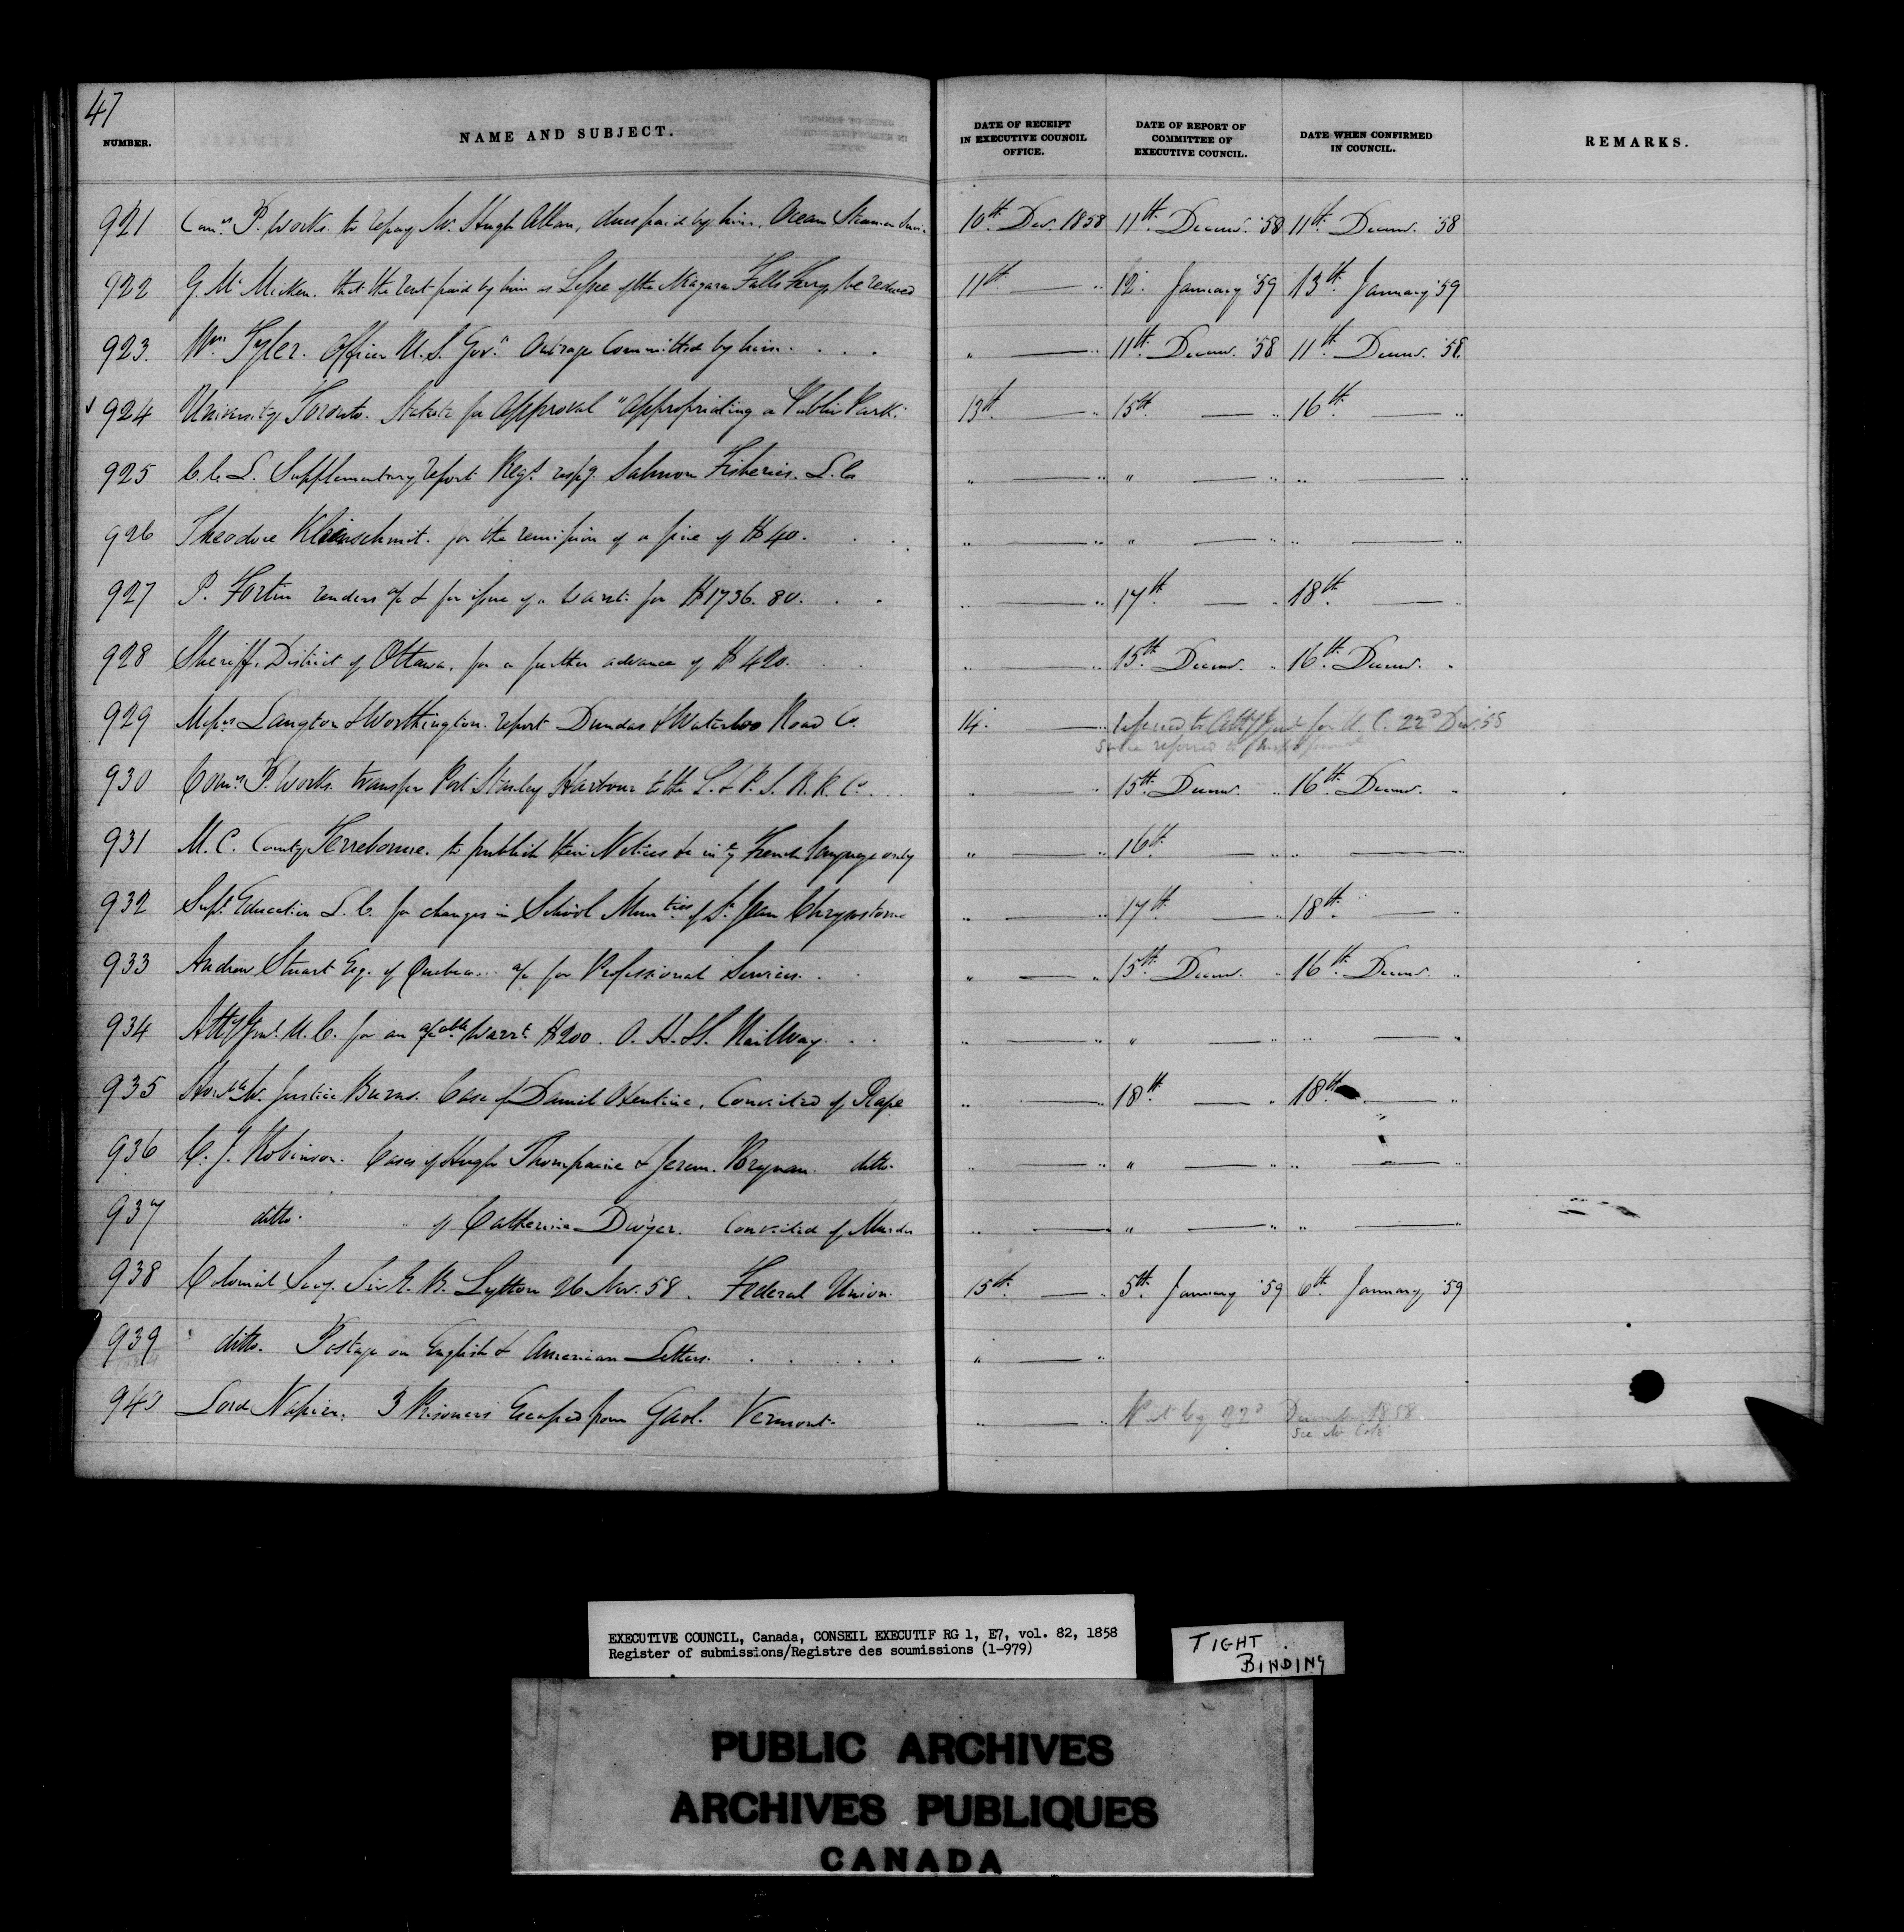 47
NUMBER. NAME AND SUBJECT. DATE OF RECEIPT IN EXECUTIVE COUNCIL OFFICE. DATE OF REPORT OF COMMITTEE OF EXECUTIVE COUNCIL. DATE WHEN CONFIRMED IN COUNCIL. REMARKS.
921 Comrs. P. Works. to repay Mr. Hugh Allan, dues paid by him, Ocean Steamer 10th Dec. 1858 11th Decemr. '58 11th Decemr. '58
922 G. McMicken. that the rent paid by him as Lessee of the Niagara Falls Ferry be reduced 11th — " 12. January '59 13th January '59
923. Wm Tyler. Officer U.S. Govt. Outrage Committed by him. . . . " — " 11th Decemr. '58 11th Decemr. '58.
924 University Toronto. Statute for Approval "appropriating a Public Park. 13th — " 15th — " 16th — "
925 C. C. L. Supplementary report Regt. respg. Salmon Fisheries. L. Ca " — " " — " " — "
926 Theodore Kleinschmit. for the remission of a fine of $40. . . " — " " — " " — "
927 P. Fortin renders a/c & for issue of a Warrt. for $1736.80. . . " — " 17th — " 18th — "
928 Sheriff, District of Ottawa, for a further advance of $420. . . " — " 15th Decemr. " 16th Decemr. "
929 Messrs Langton & Worthington. report Dundas & Waterloo Road Co. 14. — " referred to Atty Genl for U. C. 22d Dec. 58
since referred to
930 Comrs. P. Works. transfer Port Stanley Harbour to the L. & P. S. R. R. Co. . . " — " 15th Decemr. " 16th Decemr. "
931 M. C. County Terrebonne. to publish their Notices &c in ye French language only " — " 16th. — " " — "
932 Supt. Education L. C. for changes in School Munties of St Jean Chrysostome " — " 17th. — " 18th. — "
933 Andrew Stuart Esq. of Quebec... a/c for Professional Services. . . " — " 15th Decemr. " 16th Decemr. "
934 Atty Genl. U. C. for an a/cable Warrt. $200. O. H. Railway. . . " — " " — " " — "
935 Honble Mr. Justice Burns. Case of Daniel Clentine, Convicted of Rape " — " 18th. — " 18th — "
936 C. J. Robinson. Cases of Hugh & Jerem. ditto. " — " " — " " — "
937 ditto. " of Catherine Dwyer. Convicted of Murder " — " " — " " — "
938 Colonial Secy. Sir E. B. Lytton 26 Nov. 58. Federal Union. 15th. — " 5th. January '59 6th. January '59
939 " ditto. Postage on English & American Letters. . . . . . " — "
940 Lord Napier. 3 Prisoners Escaped from Gaol. Vermont. " — " 22d December 1858.
see
EXECUTIVE COUNCIL, Canada, CONSEIL EXECUTIF RG 1, E7, vol. 82, 1858
Register of submissions/Registre des soumissions (1-979)
TIGHT
BINDING
PUBLIC ARCHIVES
ARCHIVES PUBLIQUES
CANADA